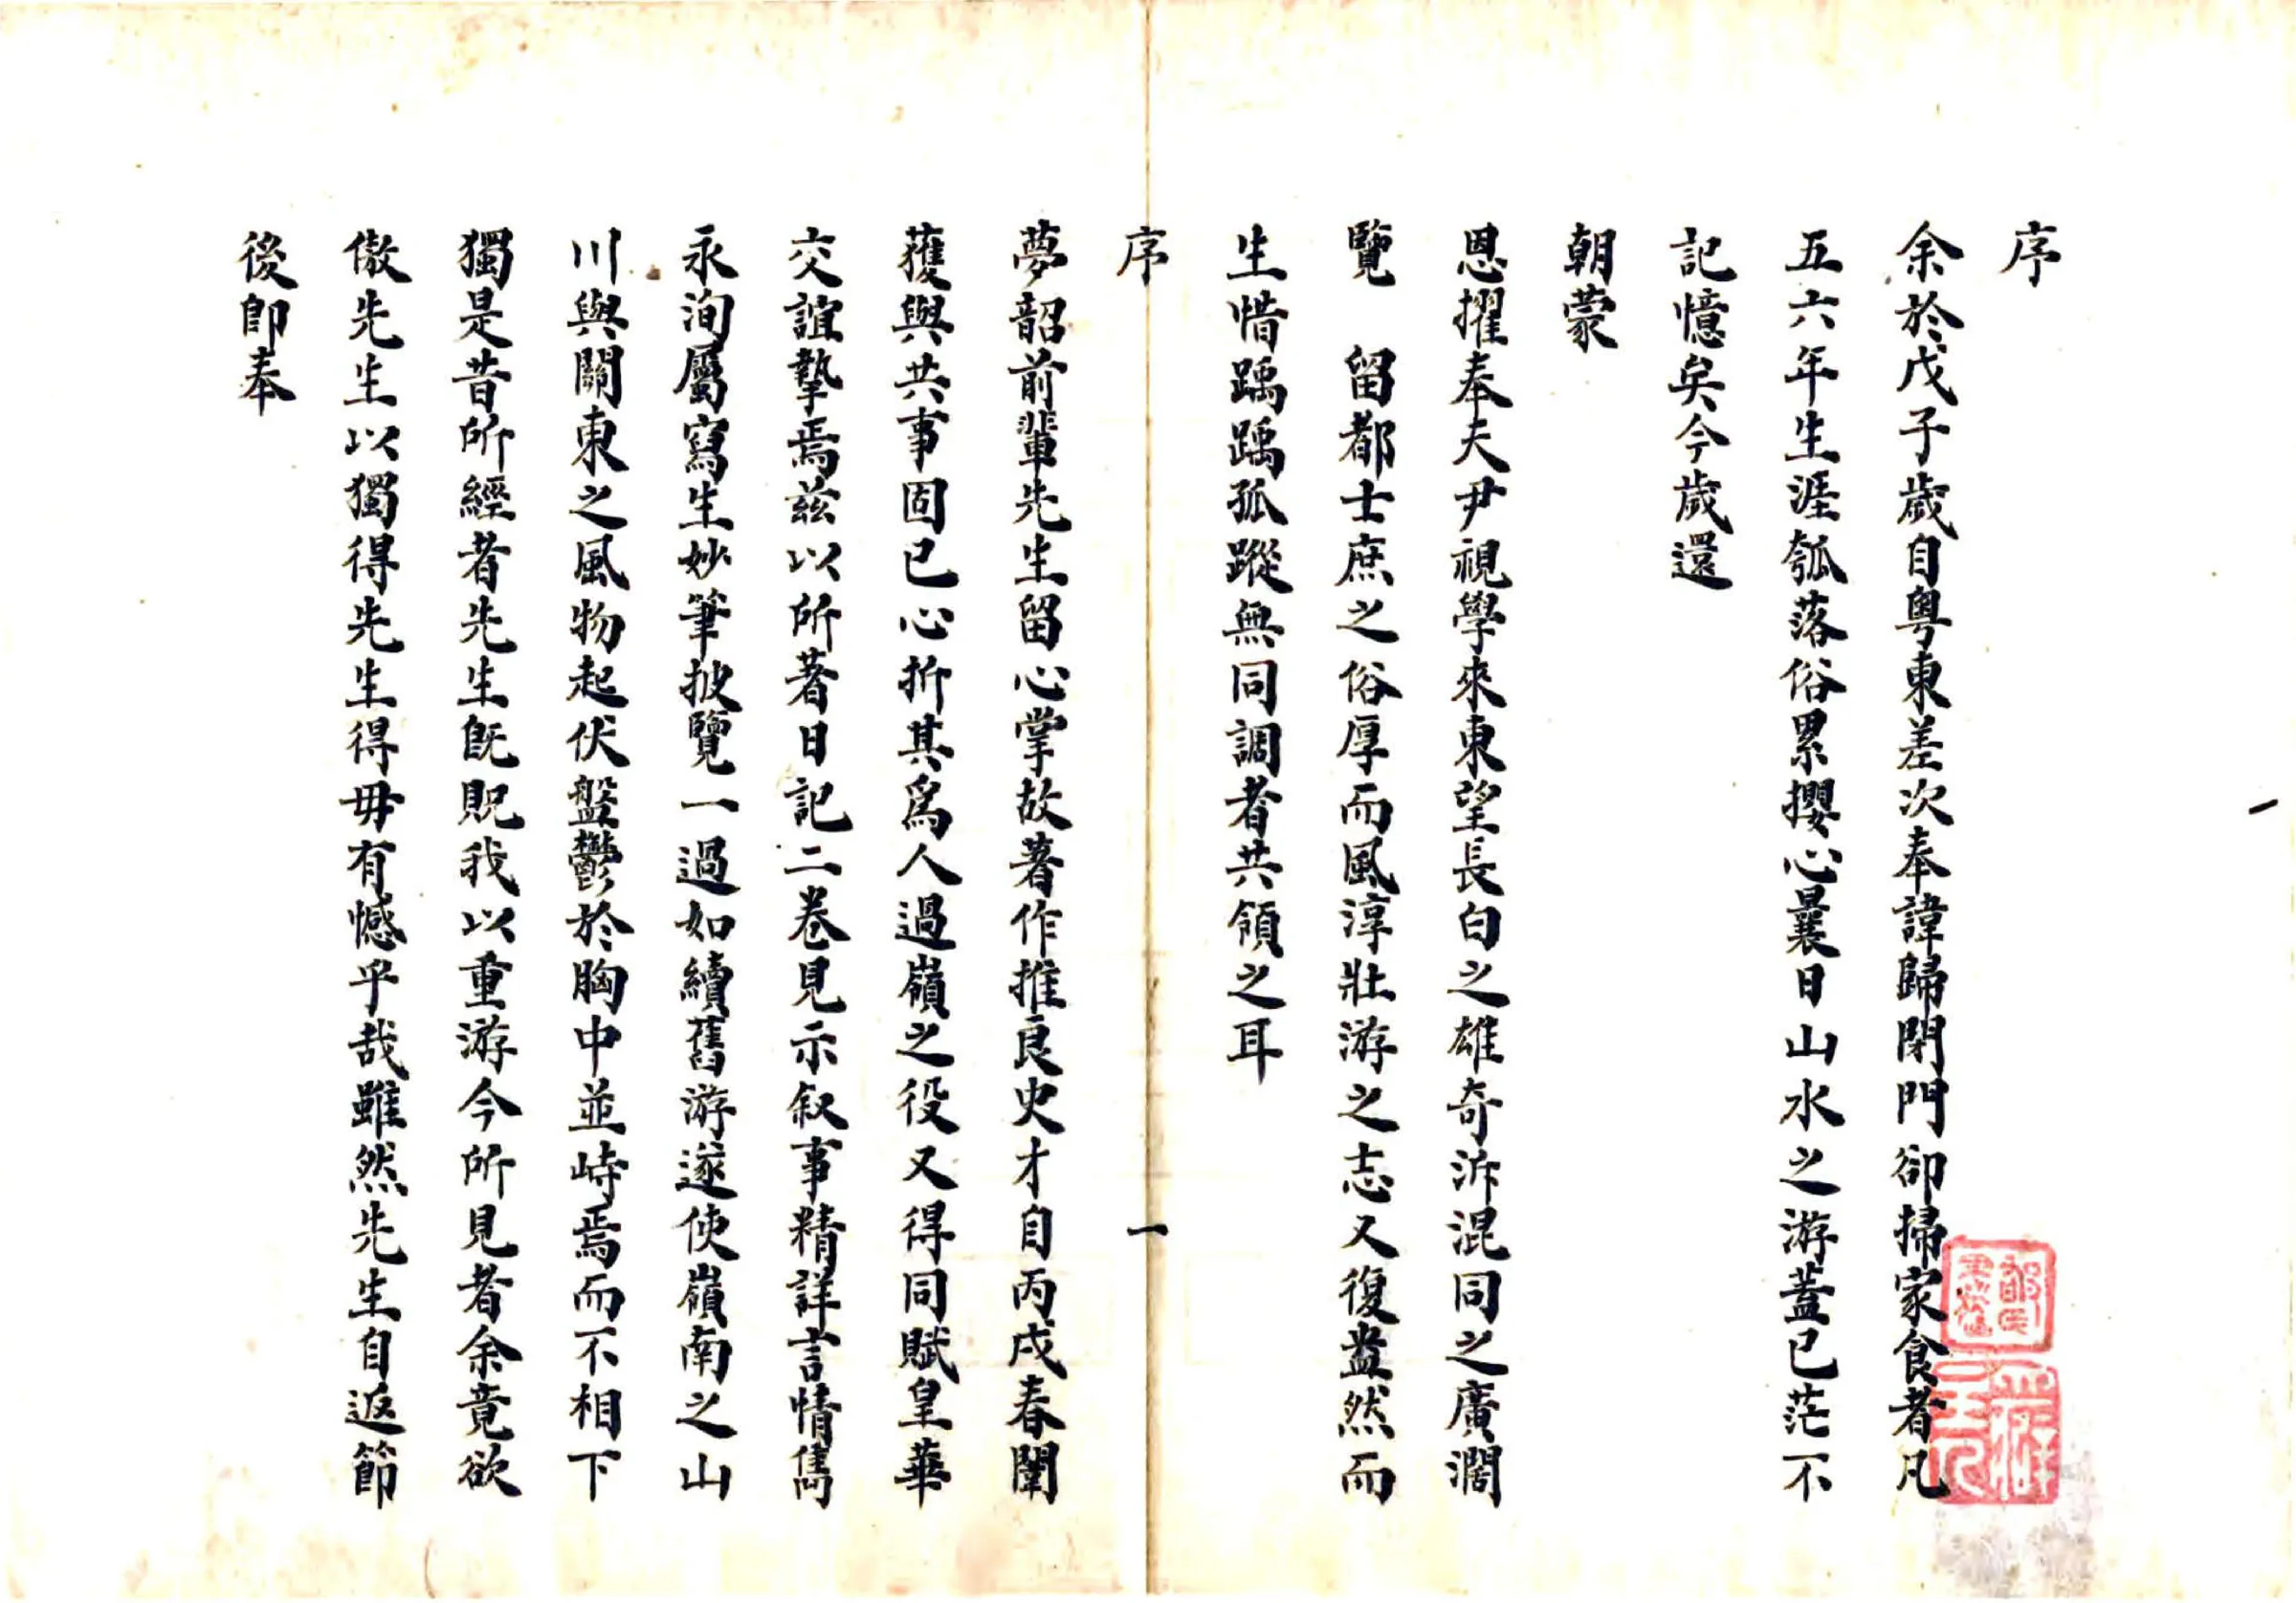 序
余於戊子歲自粵東差次奉諱歸閉門卻掃家食者凡
五六年生涯瓠落俗累攖心曩日山水之游蓋已茫不
記憶矣今歲還
朝蒙
恩擢奉天尹視學來東望長白之雄奇泝混同之廣濶
覽　留都士庶之俗厚而風淳壯游之志又復盎然而
生惜踽踽孤蹤無同調者共領之耳
序
一
夢韶前輩先生留心掌故著作推良史才自丙戌春闈
獲與共事固已心折其爲人過嶺之役又得同賦皇華
交誼摯焉茲以所著日記二卷見示叙事精詳言情雋
永洵屬寫生妙筆披覽一過如續舊游遂使嶺南之山
川與關東之風物起伏盤鬱於胸中並峙焉而不相下
獨是昔所經者先生旣貺我以重游今所見者余竟欲
傲先生以獨得先生得毋有憾乎哉雖然先生自返節
後卽奉